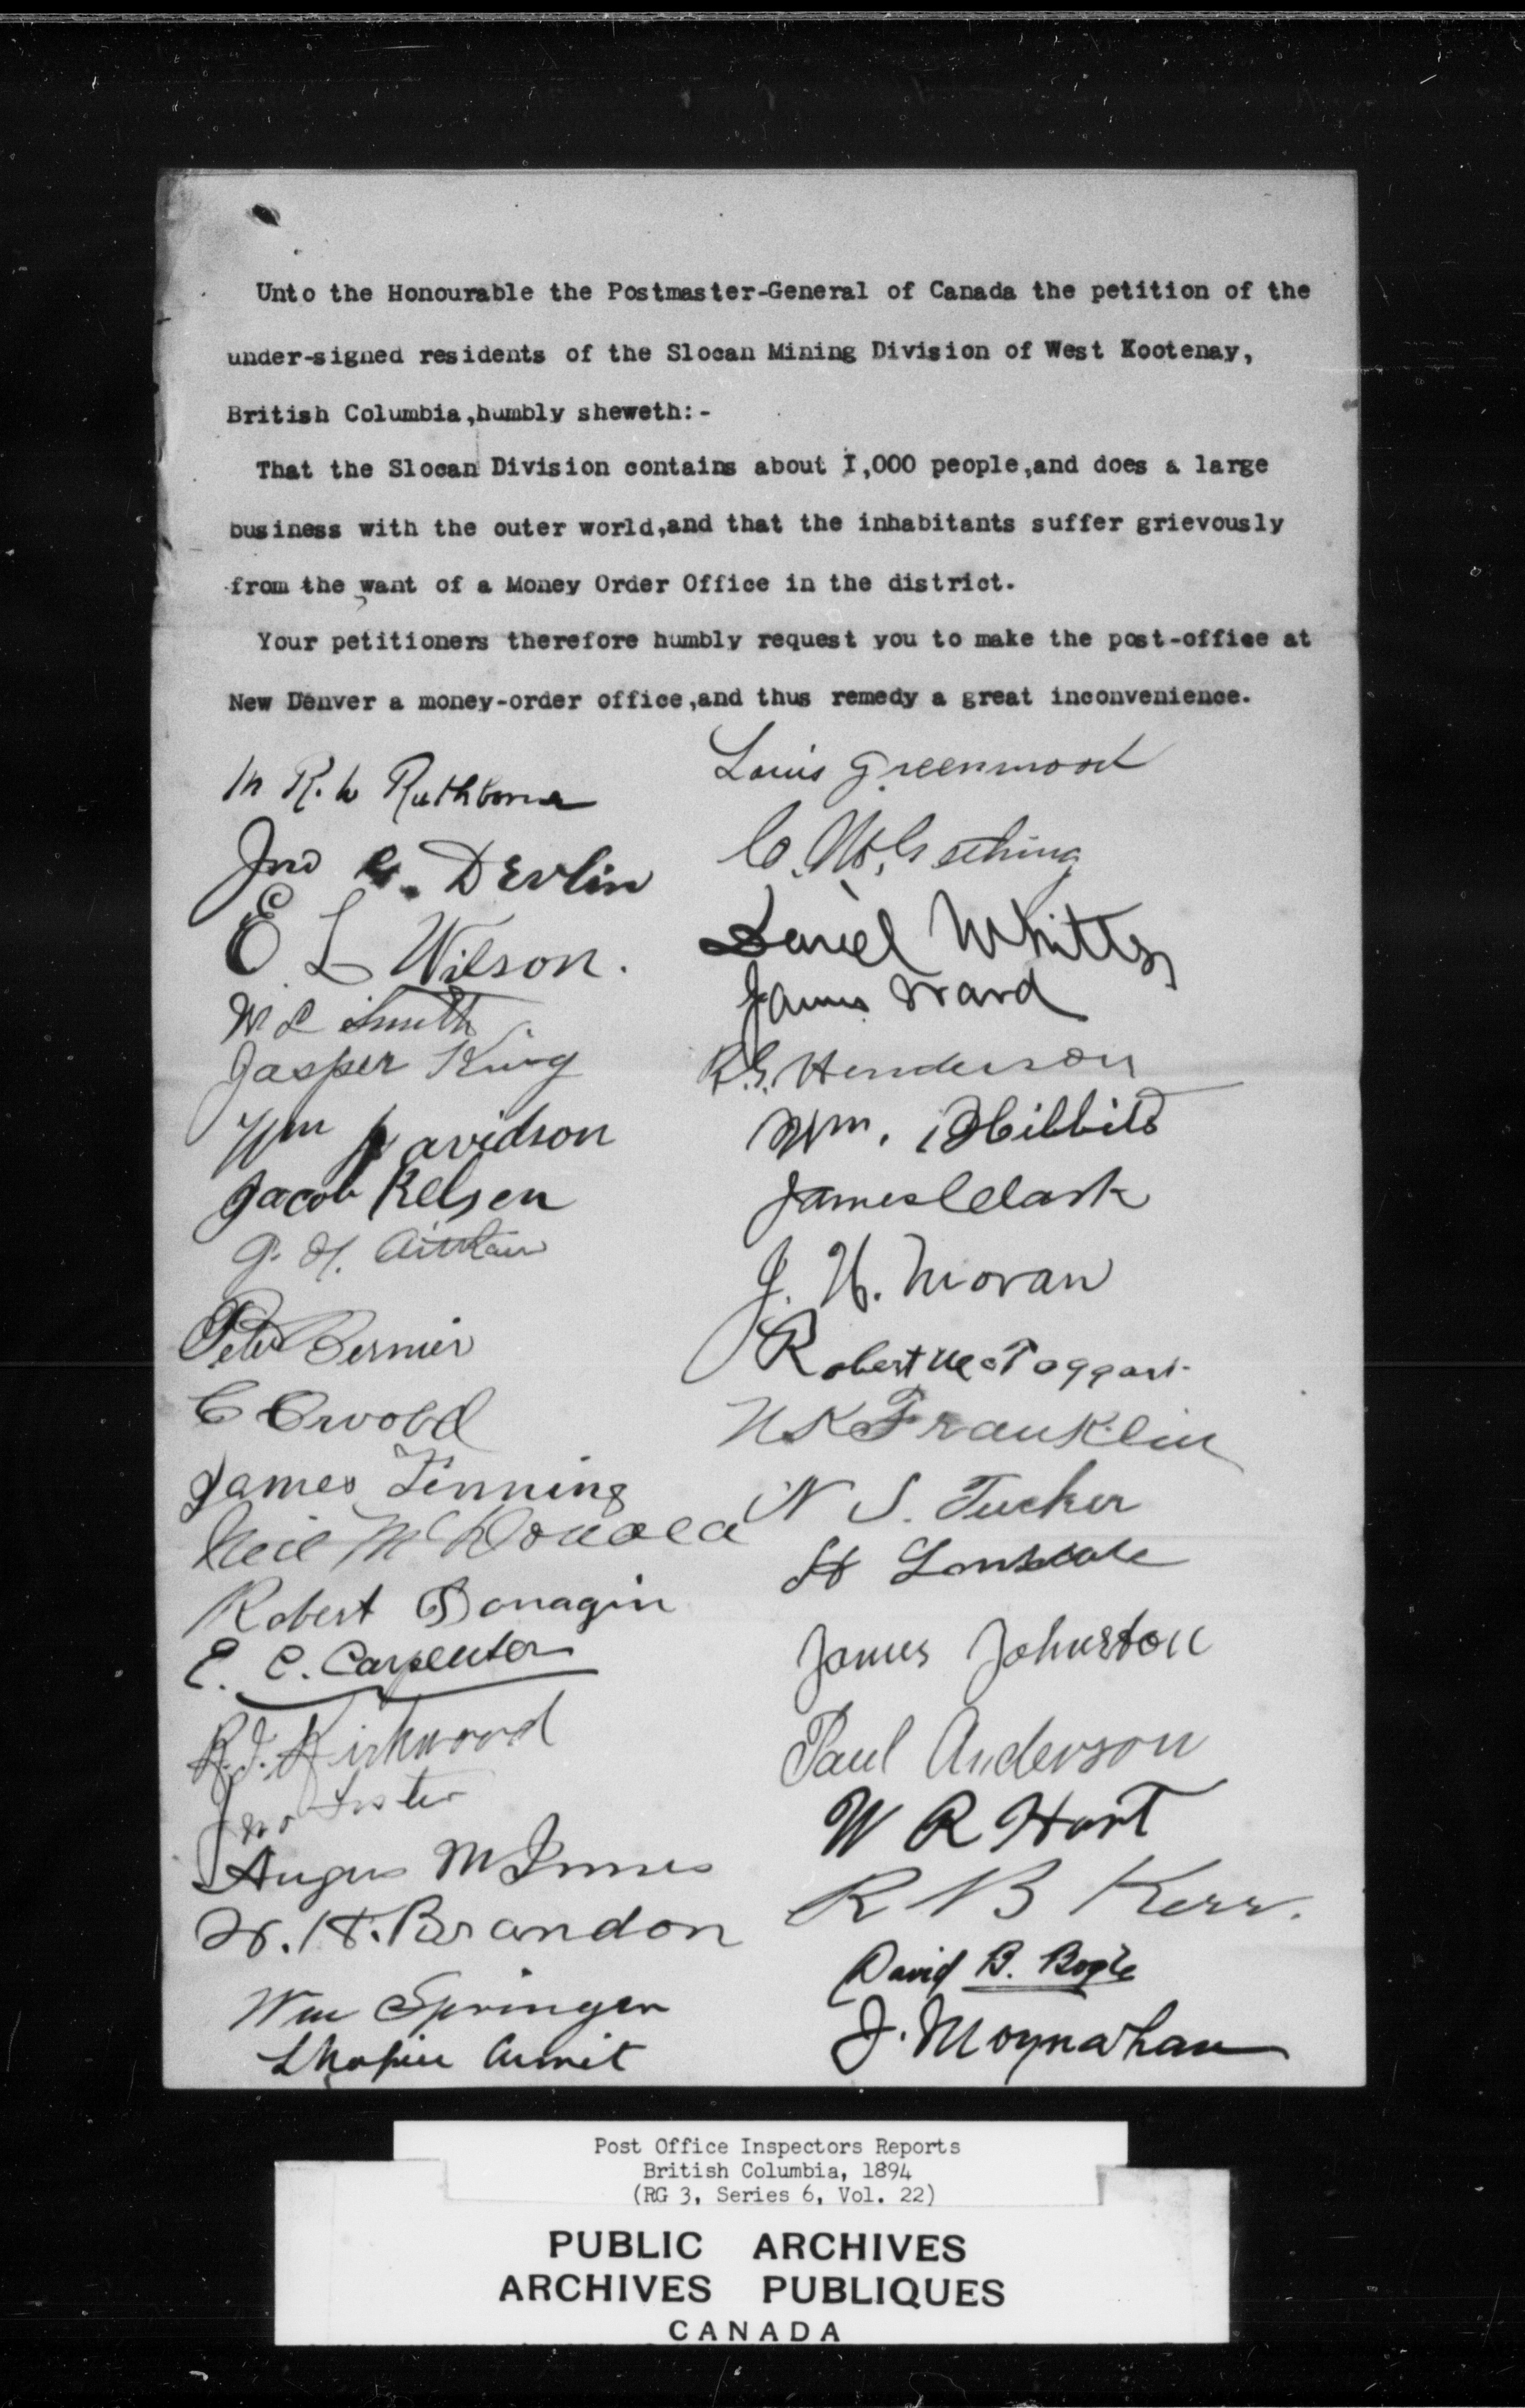 Unto the Honourable the Postmaster-General of Canada the petition of the
under-signed residents of the Slocan Mining Division of West Kootenay,
British Columbia,humbly sheweth:-
That the Slocan Division contains about 1,000 people,and does a large
business with the outer world,and that the inhabitants suffer grievously
from the want of a Money Order Office in the district.
Your petitioners therefore humbly request you to make the post-office at
New Denver a money-order office,and thus remedy a great inconvenience.
R. W Rathborne
Jno G. Devlin
E L Wilson.
W L Smith
Jasper King
Wm Davidson
Jacob Kelsen
Aitkan
Peter Bernier
C
James Fenning
Neil McDonald
Robert Bonagin
E. C. Carpenter
R. J. Kirkwood
Jno Foster
Angus McInnes
W. H. Brandon
Wm Springer
Louis Greenwood
C. M. Gething
Daniel
James Ward
R.G. Henderson
Wm. Hibbits
James Clark
J. H. Moran
Robert McTaggart
N K Franklin
N S. Tucker
H Lonsdale
James Johnston
Paul Anderson
W R Hart
R B Kerr.
David B. Bogle
J. Moynahan
Post Office Inspectors Reports
British Columbia, 1894
(RG 3, Series 6, Vol. 22)
PUBLIC ARCHIVES
ARCHIVES PUBLIQUES
CANADA